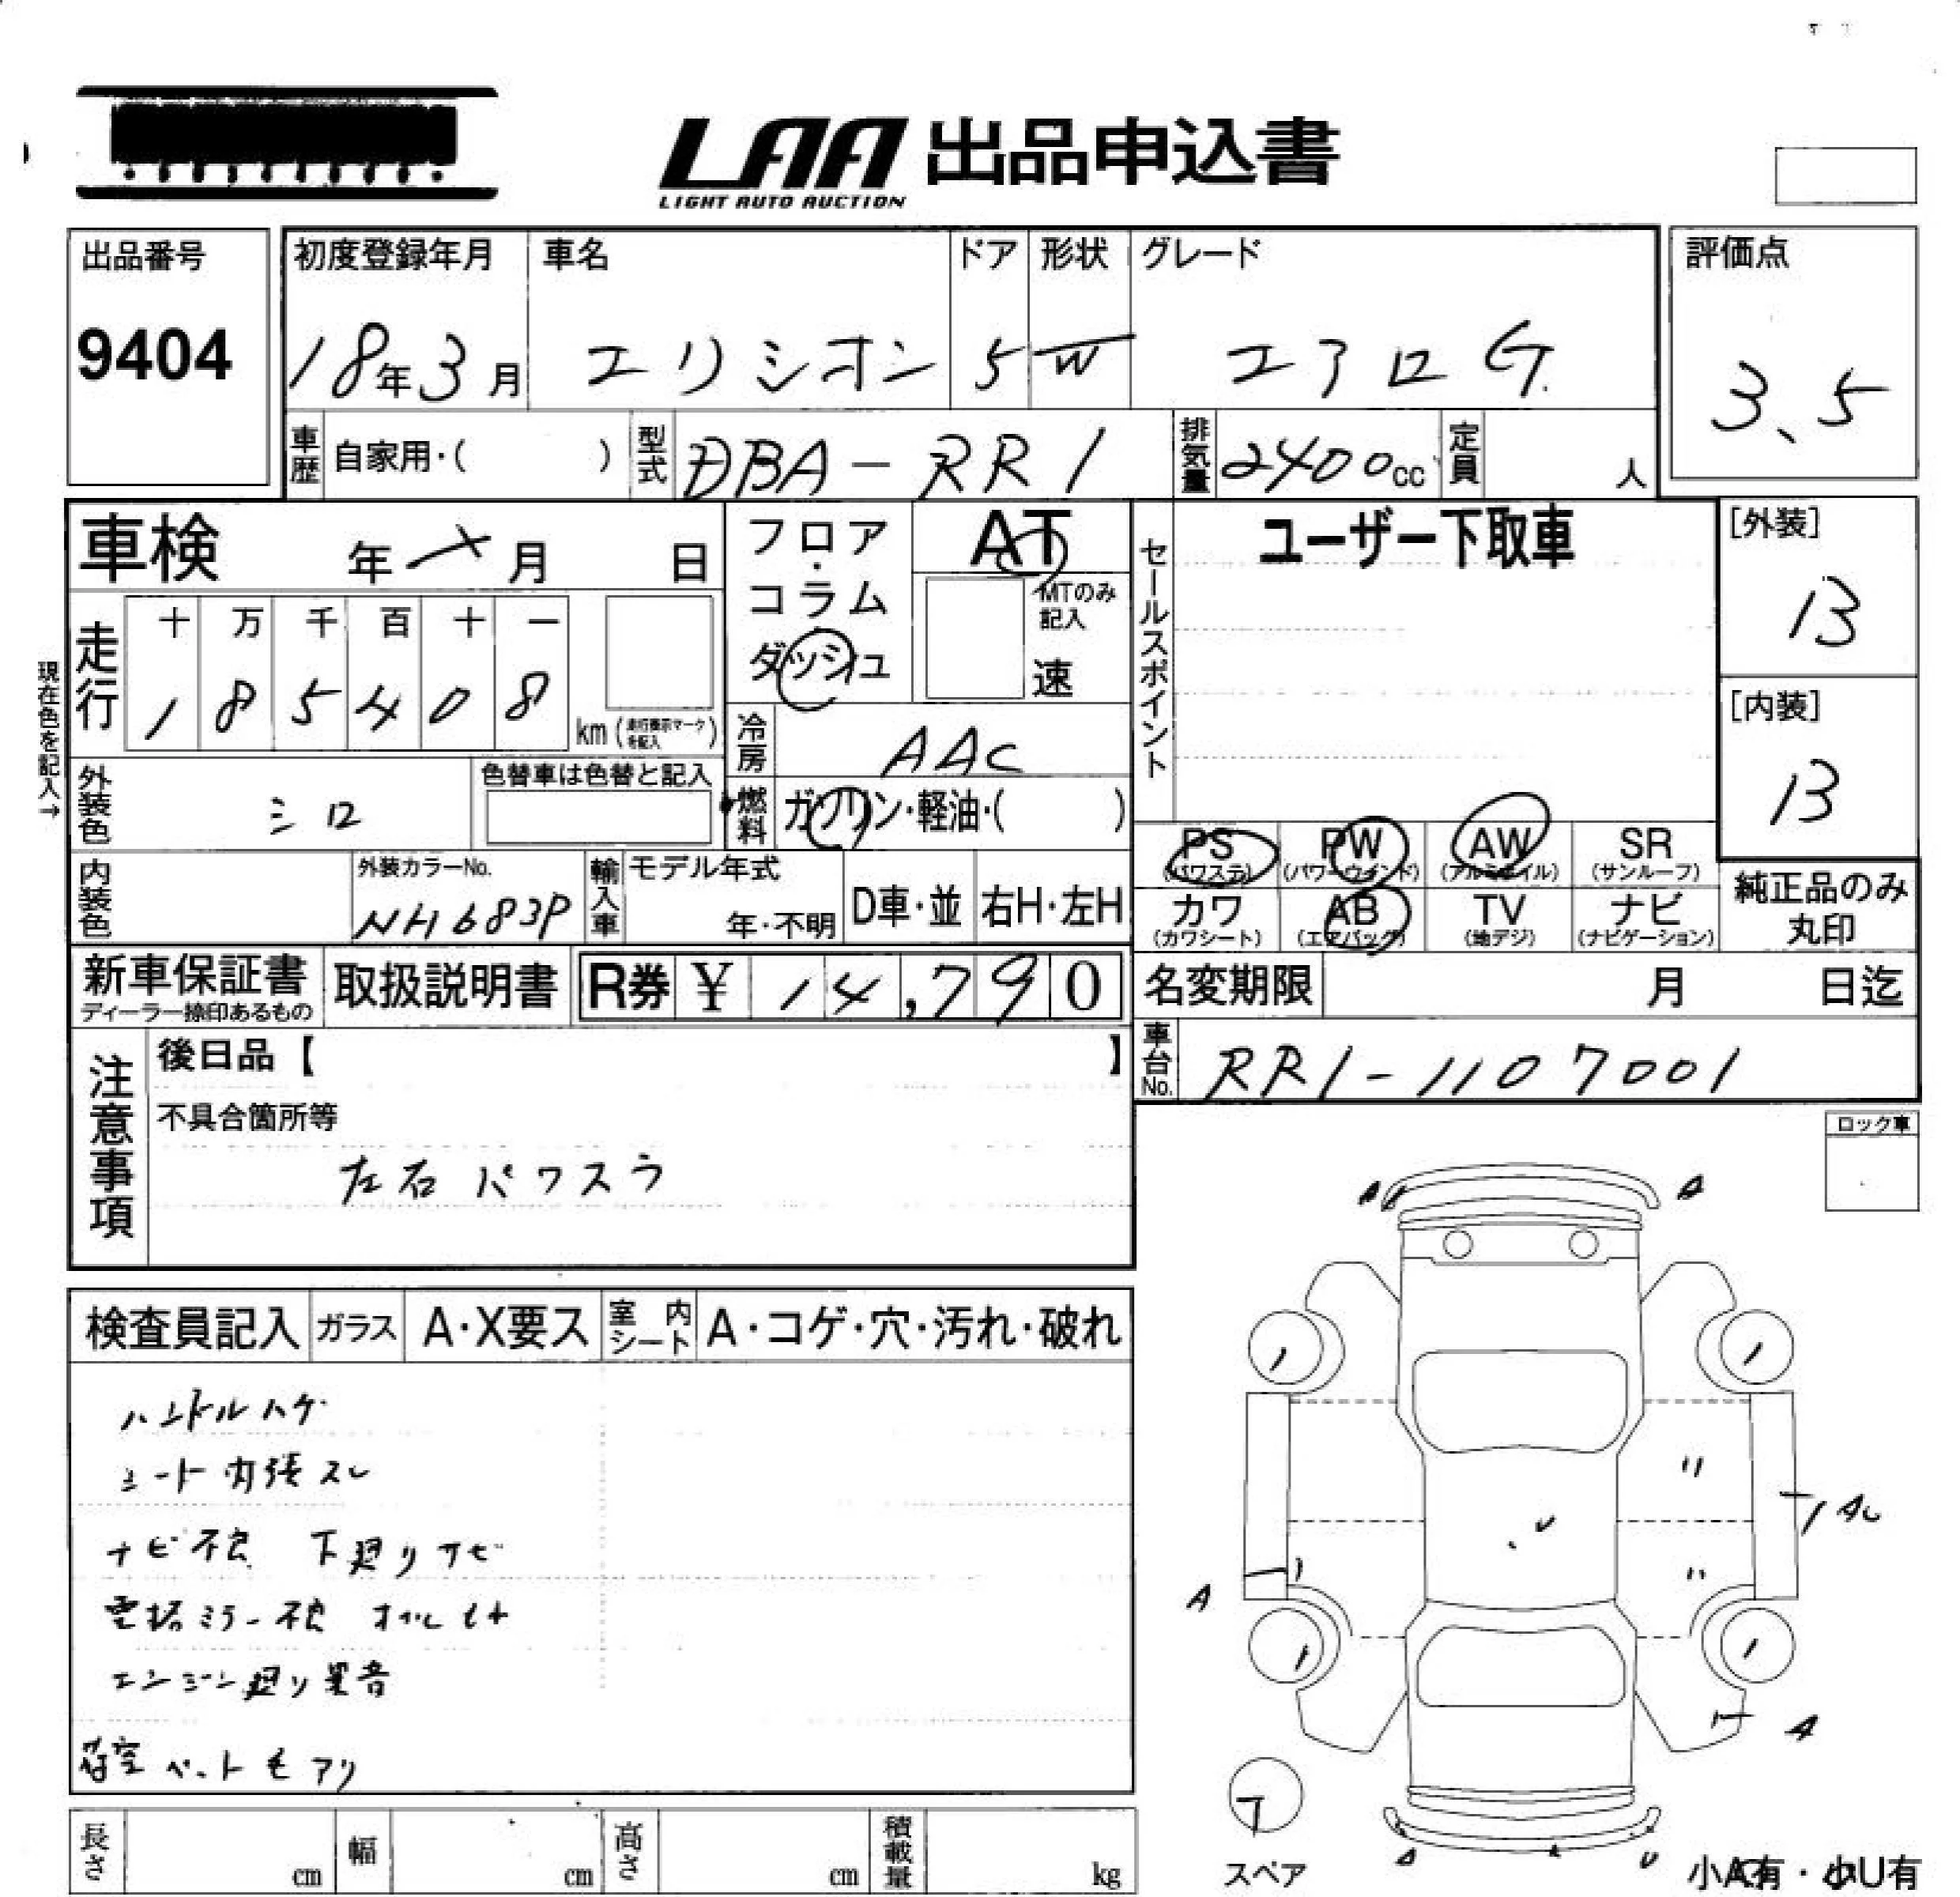 LAA 出品申込書
LIGHT AUTO AUCTION
出品番号
9404
初度登録年月
18年3月
車名
エリシオン
ドア
5
形状
W
グレード
エアロG
評価点
3.5
車歴 自家用・( )
型式 DBA-RR1
排気量 2400cc
定員 人
車検 年 月 日
走行
十 万 千 百 十 一
1 8 5 4 0 8
km (走行表示マークを記入)
現在色を記入→
フロア・コラム・ダッシュ
AT
MTのみ記入
速
冷房 AAC
燃料 ガソリン・軽油・( )
セールスポイント
ユーザー下取車
[外装]
13
[内装]
13
外装色 シロ
色替車は色替と記入
内装色
外装カラーNo.
NH683P
輸入車
モデル年式
年・不明
D車・並
右H・左H
PS (パワステ)
PW (パワーウインド)
AW (アルミホイル)
SR (サンルーフ)
カワ (カワシート)
AB (エアバッグ)
TV (地デジ)
ナビ (ナビゲーション)
純正品のみ丸印
新車保証書
ディーラー捺印あるもの
取扱説明書
R券 ¥ 14,790
名変期限 月 日迄
車台No. RR1-1107001
注意事項
後日品【 】
不具合箇所等
左右パワスラ
ロック車
検査員記入
ガラス A・X要ス
室内シート A・コゲ・穴・汚れ・破れ
ハンドルハゲ
シート内張スレ
ナビ不良 下廻りサビ
電格ミラー不良 オイルモレ
エンジン廻り異音
荷室ペット毛アリ
A
A
A
A
A
U
スペア
小A有・小U有
長さ cm
幅 cm
高さ cm
積載量 kg